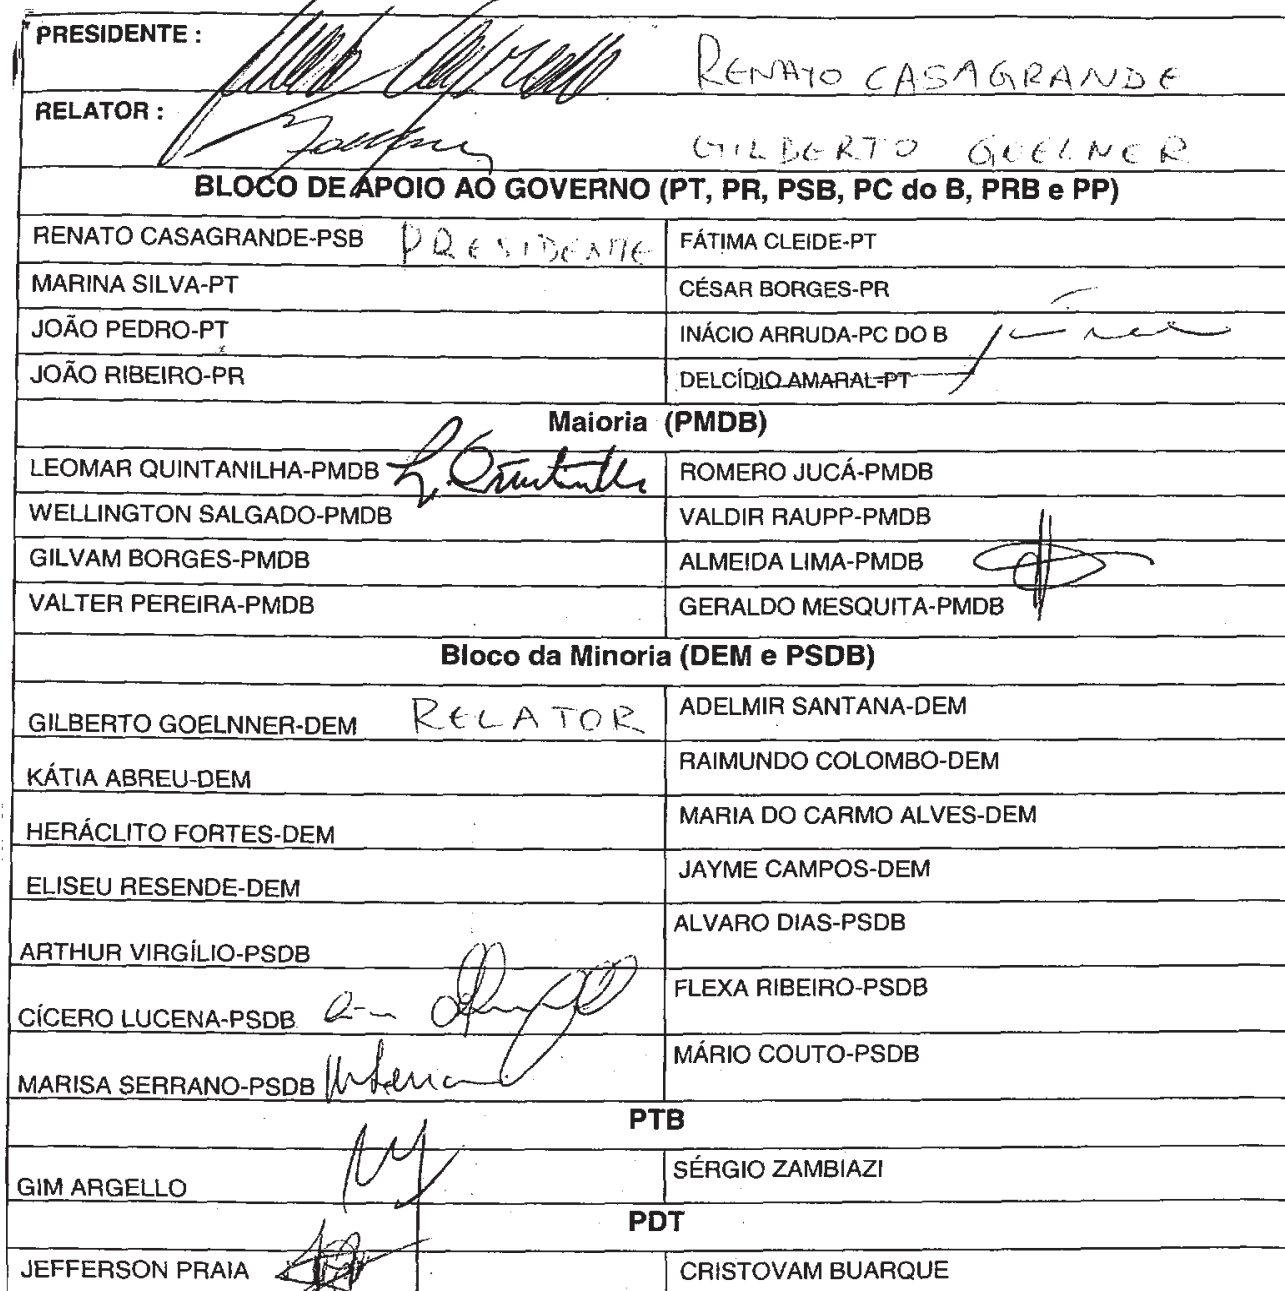 PRESIDENTE :
RENATO CASAGRANDE
RELATOR :
GILBERTO GOELNER
BLOCO DE APOIO AO GOVERNO (PT, PR, PSB, PC do B, PRB e PP)
RENATO CASAGRANDE-PSB PRESIDENTE FÁTIMA CLEIDE-PT
MARINA SILVA-PT CÉSAR BORGES-PR
JOÃO PEDRO-PT INÁCIO ARRUDA-PC DO B
JOÃO RIBEIRO-PR DELCÍDIO AMARAL-PT
Maioria (PMDB)
LEOMAR QUINTANILHA-PMDB ROMERO JUCÁ-PMDB
WELLINGTON SALGADO-PMDB VALDIR RAUPP-PMDB
GILVAM BORGES-PMDB ALMEIDA LIMA-PMDB
VALTER PEREIRA-PMDB GERALDO MESQUITA-PMDB
Bloco da Minoria (DEM e PSDB)
GILBERTO GOELNNER-DEM RELATOR ADELMIR SANTANA-DEM
KÁTIA ABREU-DEM RAIMUNDO COLOMBO-DEM
HERÁCLITO FORTES-DEM MARIA DO CARMO ALVES-DEM
ELISEU RESENDE-DEM JAYME CAMPOS-DEM
ARTHUR VIRGÍLIO-PSDB ALVARO DIAS-PSDB
CÍCERO LUCENA-PSDB FLEXA RIBEIRO-PSDB
MARISA SERRANO-PSDB MÁRIO COUTO-PSDB
PTB
GIM ARGELLO SÉRGIO ZAMBIAZI
PDT
JEFFERSON PRAIA CRISTOVAM BUARQUE